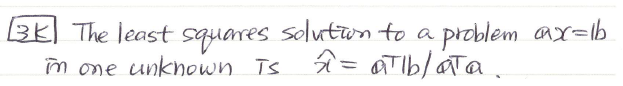 3K The least squares solution to a problem ax=b
in one unknown is x̂ = aᵀb/aᵀa.